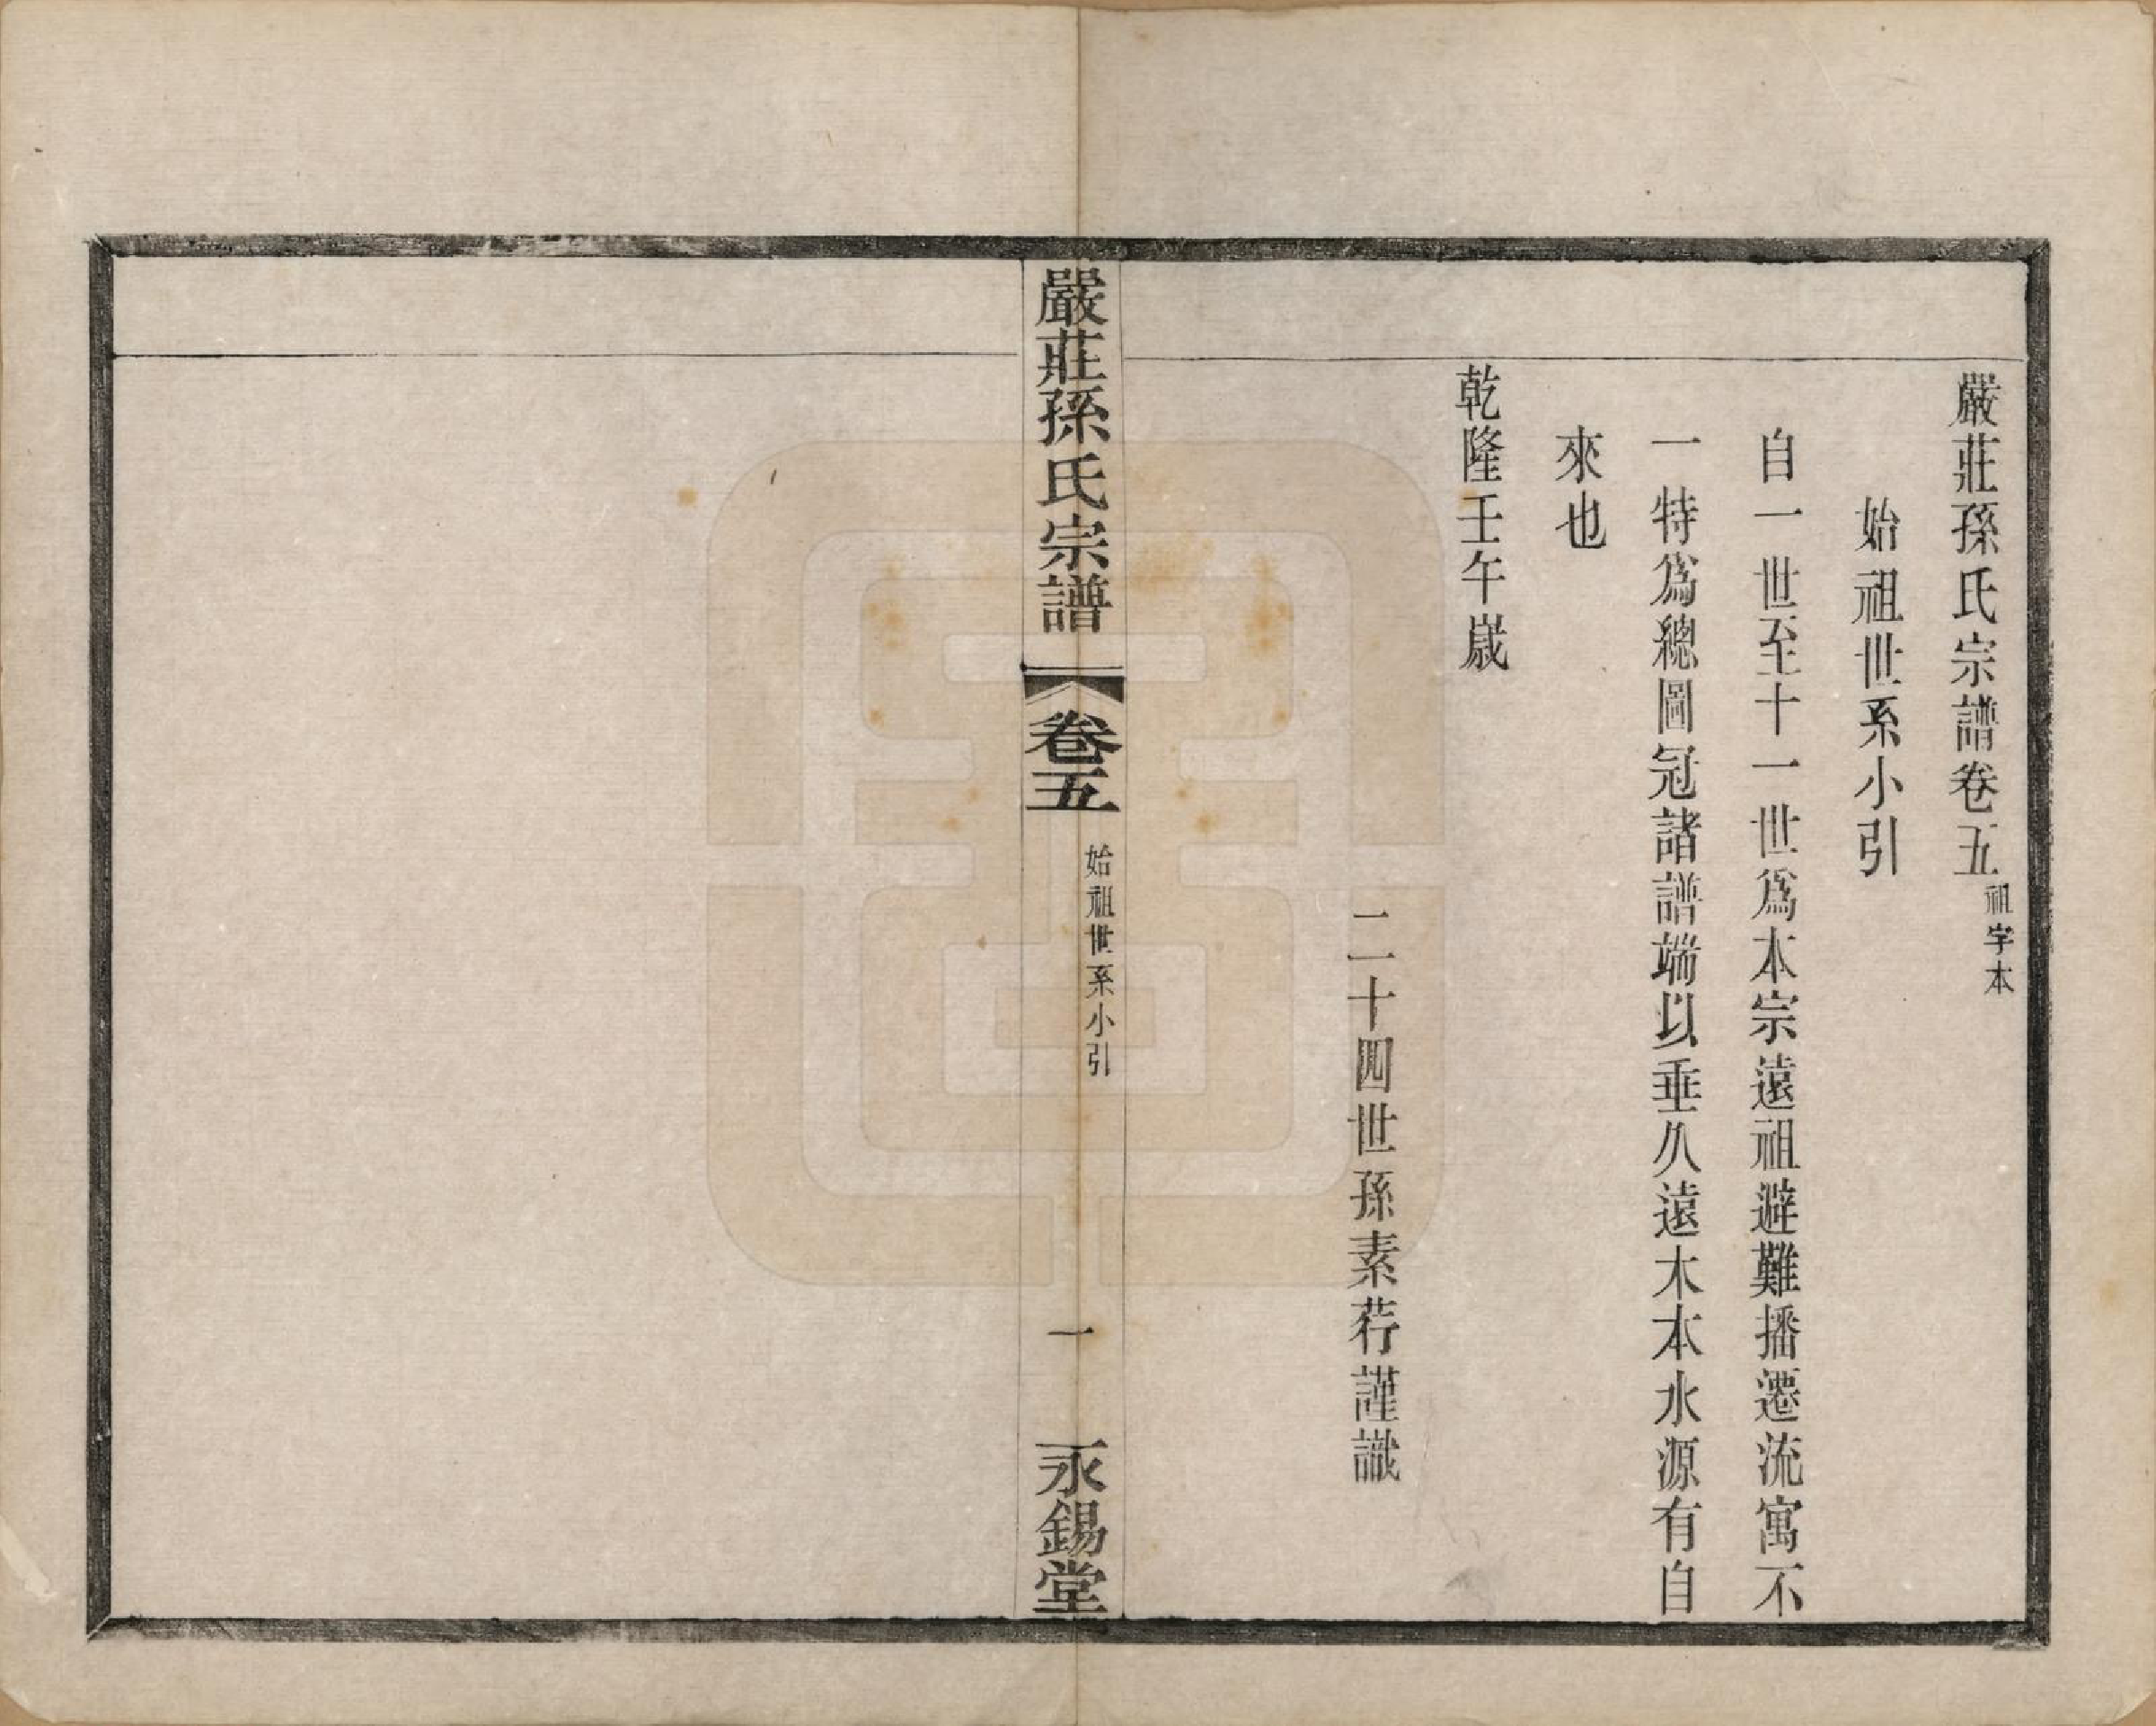 嚴莊孫氏宗譜卷五祖字本
始祖世系小引
自一世至十一世爲本宗遠祖避難播遷流寓不
一特爲總圖冠諸譜端以垂久遠木本水源有自
來也
乾隆壬午歲
二十四世孫素荇謹識
嚴莊孫氏宗譜
卷五
始祖世系小引
一
永錫堂